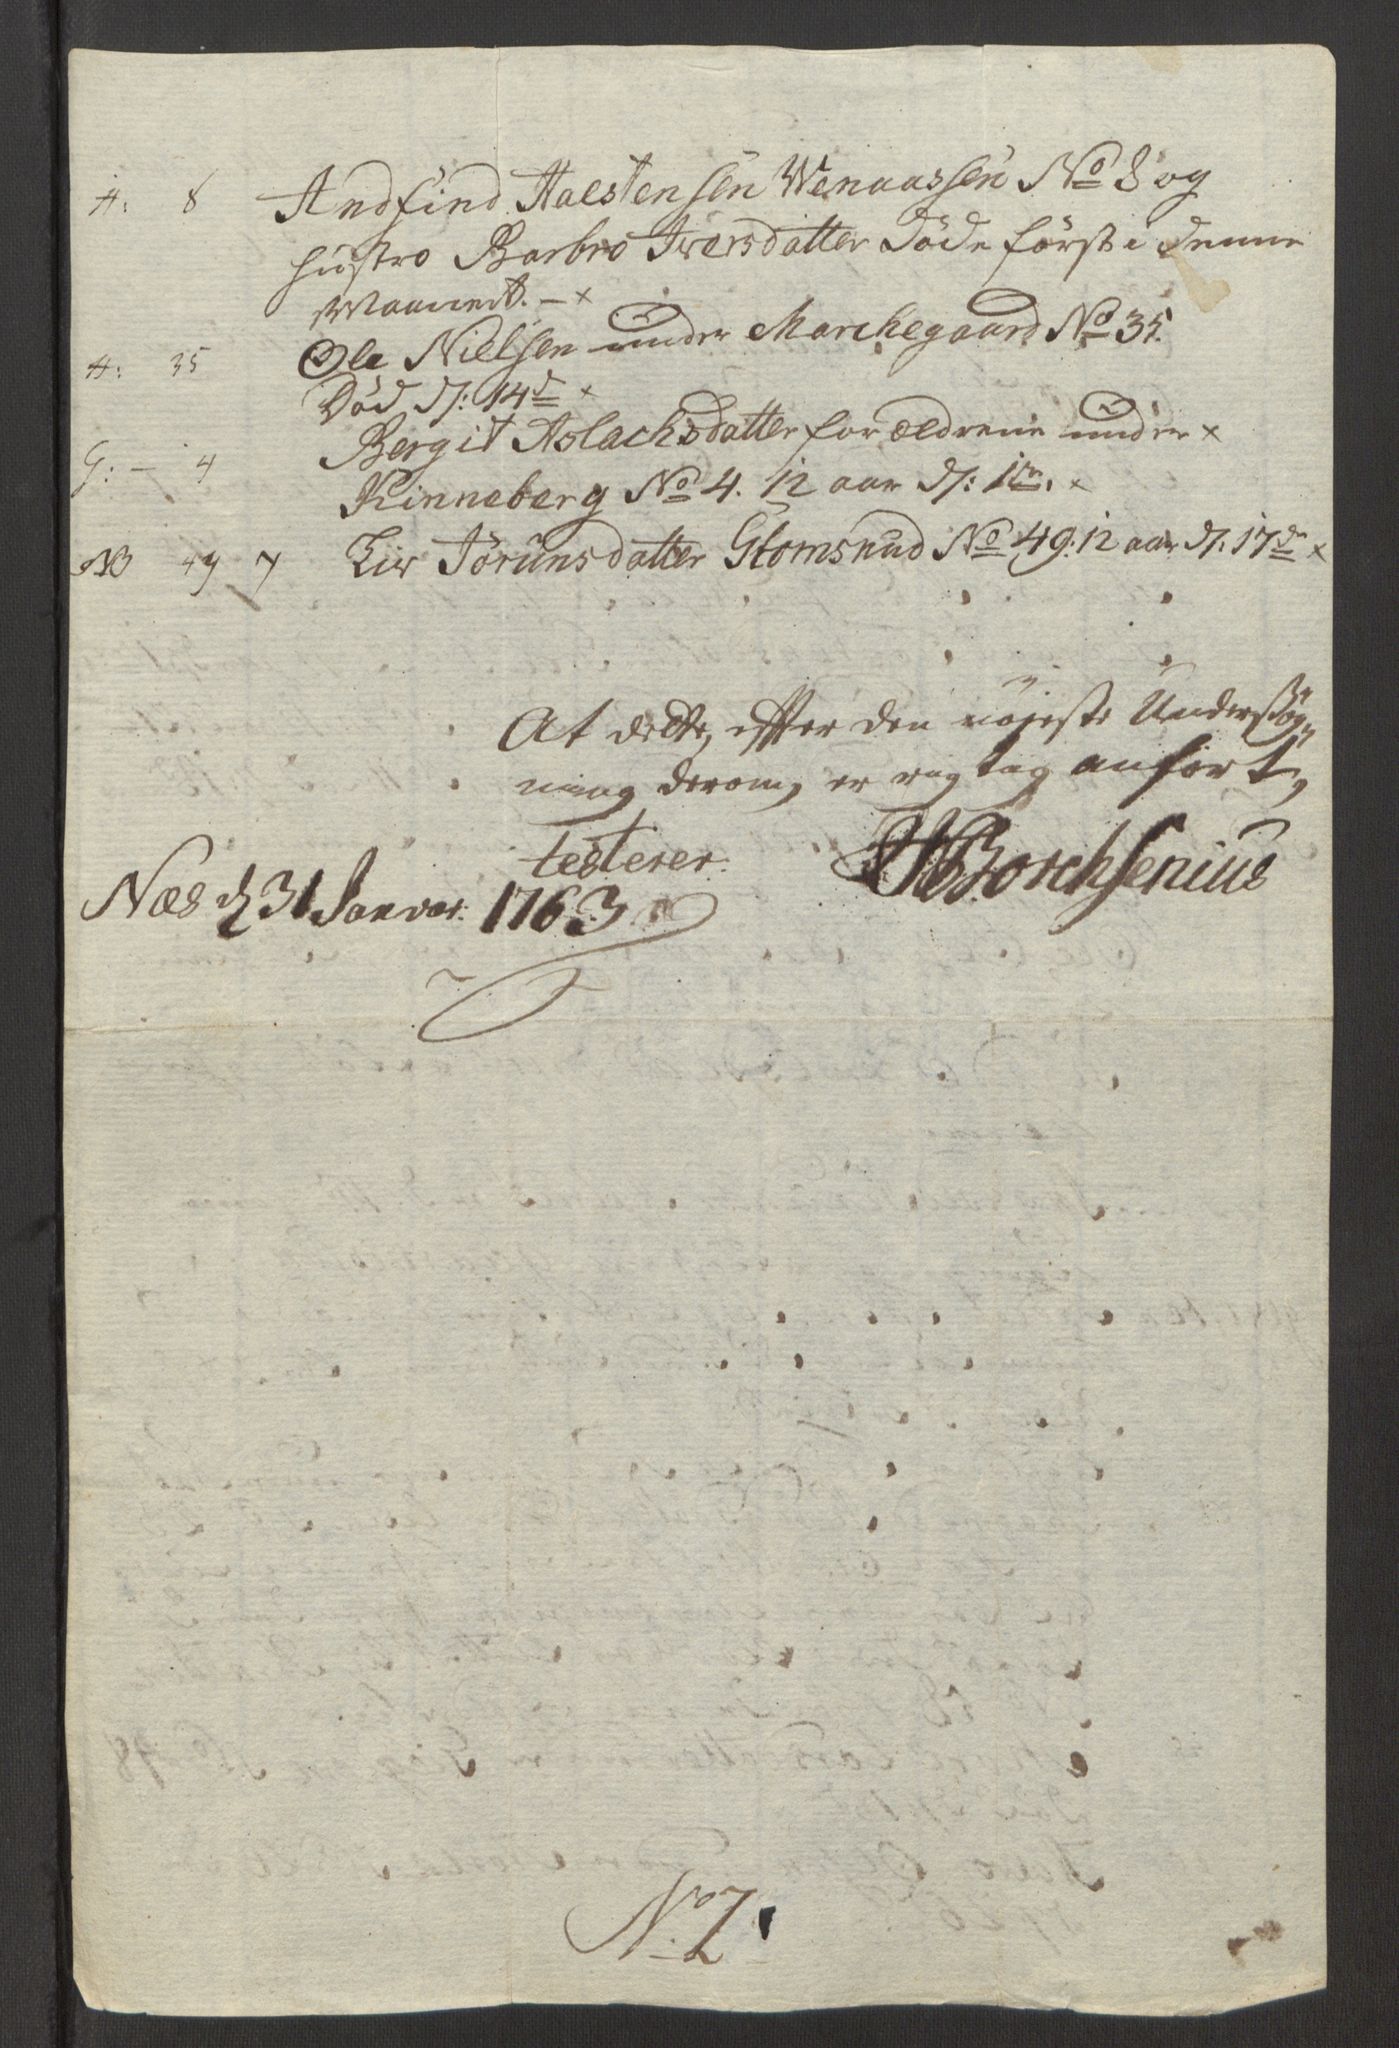 H: 8 Andfind Halstensen Wenaassen No 8 og
hustro Barbro Iversdatter döde först i denne
Maanedt. – x
H: 35 Ole Nielsen under Marchegaard No 35.
Död d: 14d x
G: – 4 Bergit Aslachsdatter forældrene under x
Kinneberg No 4. 12 aar d: 1te. x
NB 49 7 Liv Jörunsdatter Glomsrud No 49. 12 aar d. 17de x
At dette, efter den nöjeste Undersög„
ning derom, er rigtig anfört,
testerer. Borchsenius
Næs d 31 Januar. 1763
No. 7